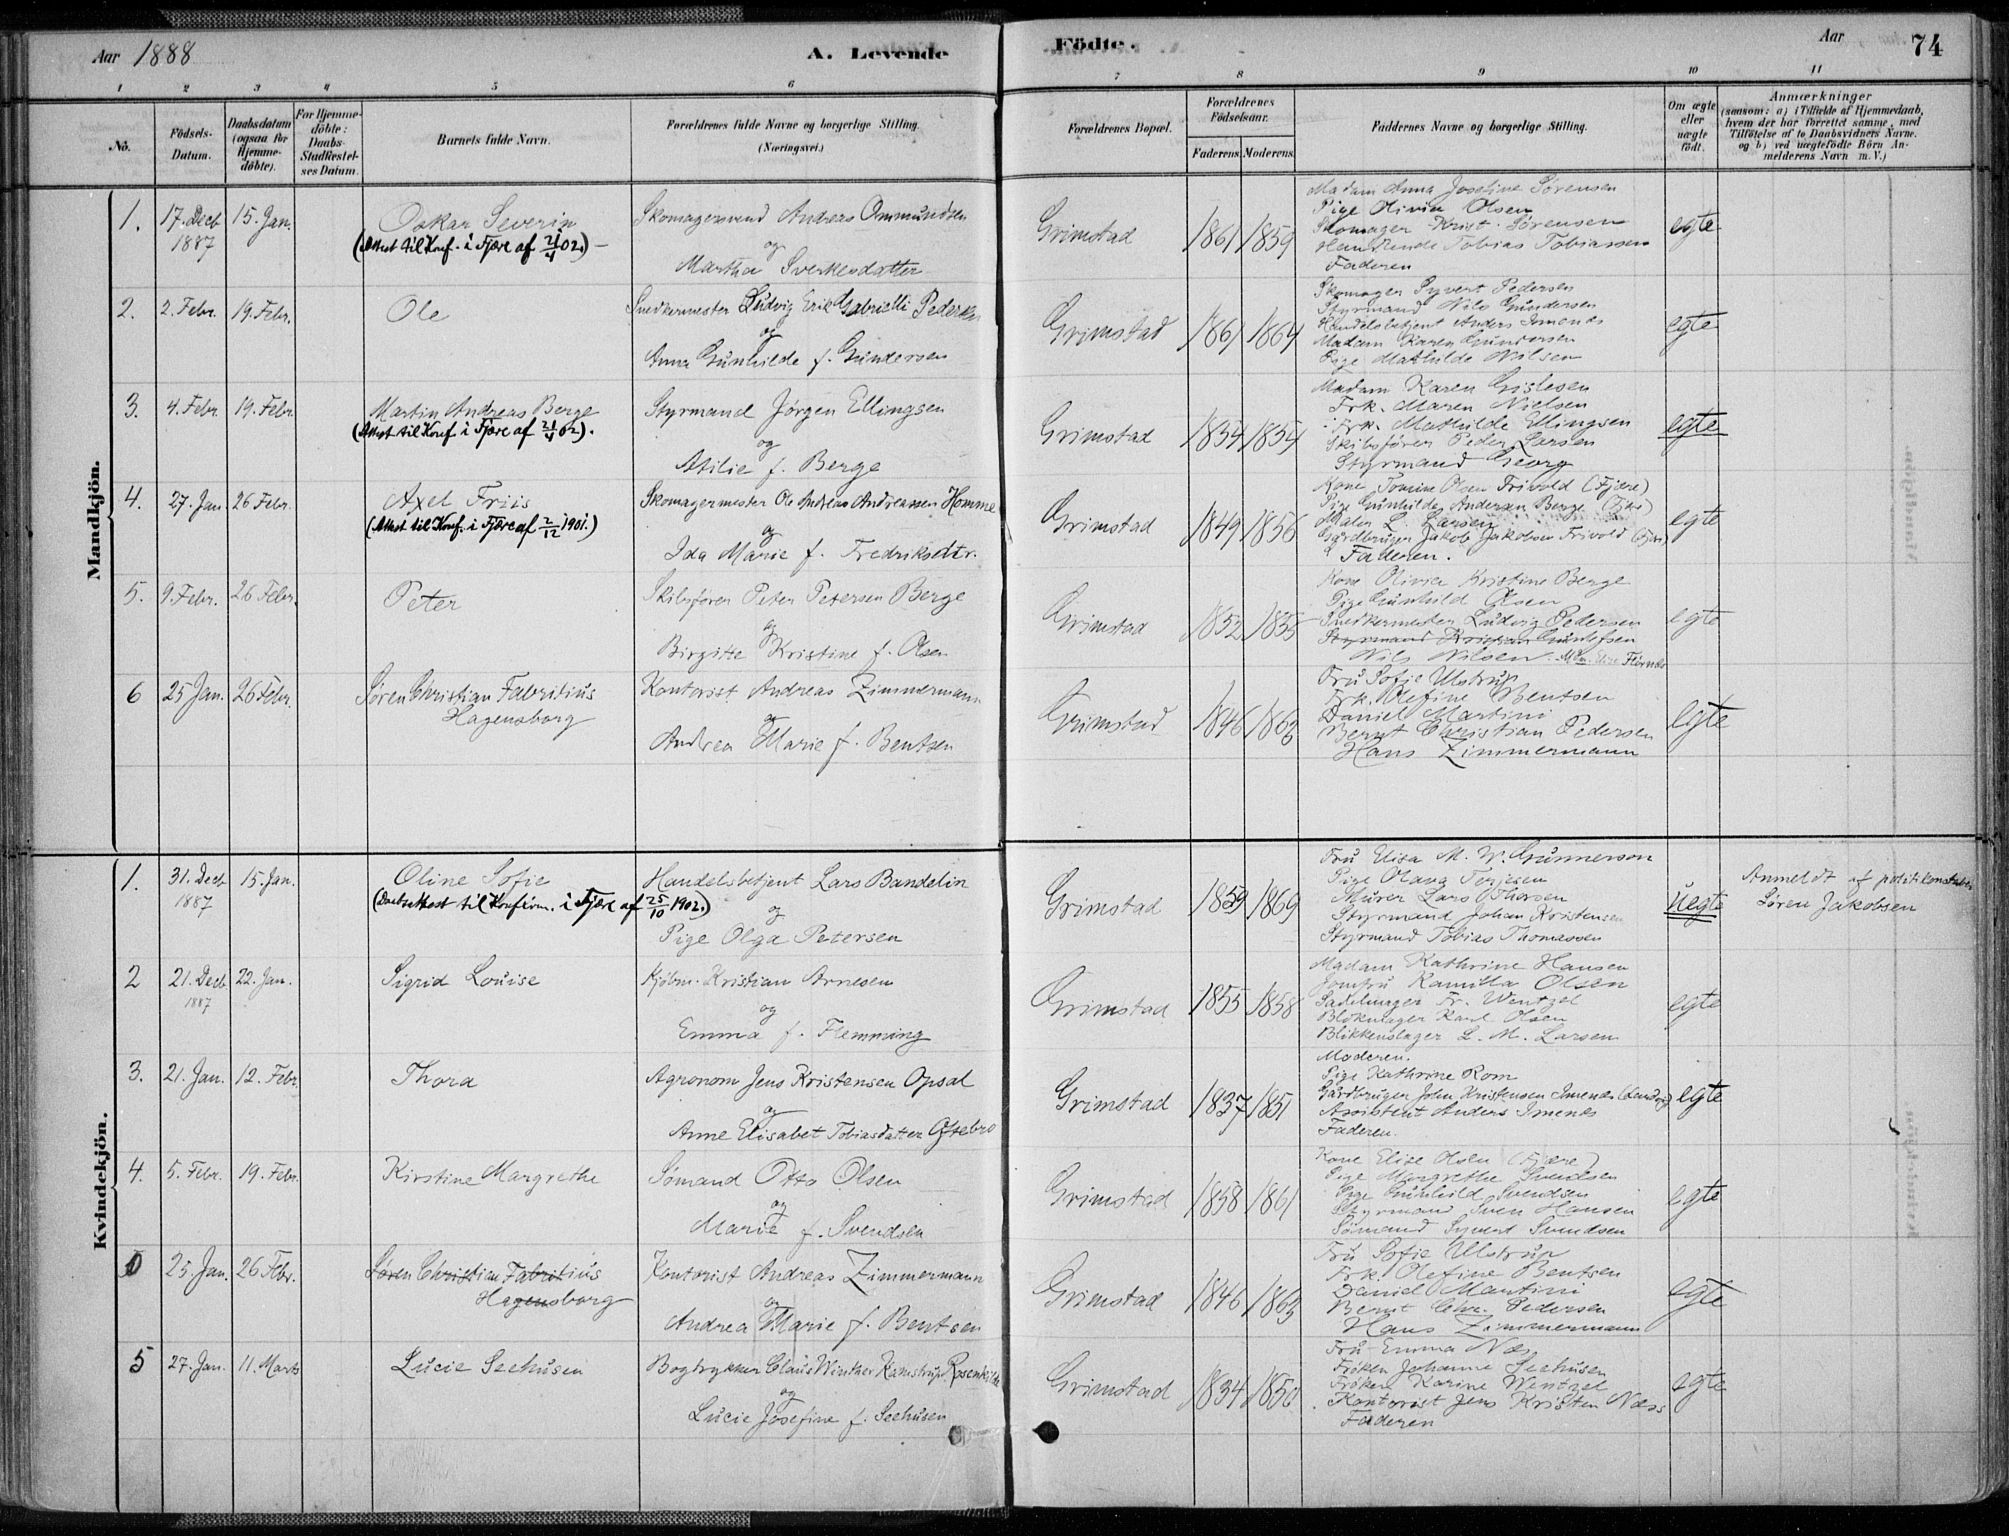 Aar 1888
A. Levende
Födte.
Aar
74
1 2 3 4 5 6
7 8 9 10 11
No.
Födsels-
Datum.
Daabsdatum
(ogsaa for
Hjemme-
döbte).
For Hjemme-
döbte:
Daabs-
Stadfæstel-
ses Datum.
Barnets fulde Navn.
Forældrenes fulde Navne og borgerlige Stilling.
(Næringsvei.)
Forældrenes Bopæl.
Forældrenes
Födselsaar.
Faderens Moderens.
Faddernes Navne og borgerlige Stilling.
Om ægte
eller
uægte
födt.
Anmærkninger
(saasom: a) i Tilfælde af Hjemmedaab,
hvem der har forrettet samme, med
Tilföielse af to Daabsvidners Navne.
og b) ved uægtefödte Börn An-
melderens Navn m. V.)
Mandkjön.
1. 17. Decb 1887
15. Jan.
Oskar Severin
(Attest til Konf. i Fjære af 21/4 02.)
Skomagersvend Andreas Ommundsen
og
Martha Sverkesdatter
Grimstad 1861 1859
Madam Anna Josefine Sørensen
Pige Olivia Olsen
Skomager Krist. Sørensen
Handlende Tobias Tobiassen
Faderen
egte
2. 2. Febr. 19. Febr.
Ole
Snedkermester Ludvig Erik Gabrielli Pedersen
og
Anna Gunhilde f. Gundersen
Grimstad 1861 1864
Skomager Syvert Pedersen
Styrmand Nils Gundersen
Handelsbetjent Anders Imenes
Madam Karen Gundersen
Pige Mathilde Nilsen
egte
3. 4. Febr. 19. Febr
Martin Andreas Berge
(Attest til Konf. i Fjære af 21/4 02).
Styrmand Jörgen Ellingsen
og
Atilie f. Berge
Grimstad 1854 1854
Madam Karen Gislesen
Frk. Maren Nielsen
Frk. Mathilde Ellingsen
Skibsfører Peder Larsen
Styrmand Georg
egte
4. 27. Jan 26 Febr.
Axel Friis
(Attest til Konf. i Fjære af 2/12 1901.)
Skomagermester Ole Andreas Andreassen Homme
og
Ida Marie f. Fredriksdtr.
Grimstad 1849 1856
Kone Tomine Olsen Frivold (Fjære)
Pige Gunhilde Andersen Berge (Fjære)
Maler L. Larsen
Gaardbruger Jakob Jakobsen Frivold (Fjære)
Faderen.
egte
5. 9. Febr. 26 Febr.
Peter
Skibsfører Peter Petersen Berge
og
Birgitte Kristine f. Olsen
Grimstad 1852 1855
Kone Olivia Kristine Berge
Pige Gunhild Olsen
Snedkermester Ludvig Pedersen
Styrmand Kristian Gundersen
Nils Nilsen.
egte
6 25 Jan. 26 Febr.
Søren Christian Fabritius
Hagensborg
Kontorist Andreas Zimmermann
og
Andrea Marie f. Bentsen
Grimstad 1846 1863
Fru Sofie Ulstrup
Frk. Olefine Bentsen
Daniel Martini
Bernt Christian Pedersen
Hans Zimmermann
egte
Kvindekjön.
1. 31. Decb 1887
15. Jan.
Oline Sofie
(Daabsattest til Konfirm. i Fjære af 25/10 1902.)
Handelsbetjent Lars Bandelin
og
Pige Olga Petersen
Grimstad 1859 1869
Fru Elisa M. W. Gunnerson
Pige Olava Terjesen
Murer Lars Thorsen
Styrmand Johan Kristensen
Styrmand Tobias Thomassen
uegte
Anmeldt af politikonstabel
Søren Jakobsen
2 21. Decb 1887
22. Jan.
Sigrid Louise
Kjøbm. Kristian Arnesen
og
Emma f. Flemming
Grimstad 1855 1858
Madam Kathrine Hansen
Jomfru Kamilla Olsen
Sadelmager Fr. Wentzel
Blokmager Karl Olsen
Blikkenslager L. M. Larsen
egte
3. 21. Jan. 12. Febr.
Thora
Agronom Jens Kristensen Opsal
og
Anne Elisabet Tobiasdatter Oftebro
Grimstad 1837 1851
Moderen.
Pige Kathrine Rom
Gårdbruger John Kristensen Imenes (Landvig)
Assistent Anders Imenes
Faderen.
egte
4. 5. Febr. 19. Febr.
Kirstine Margrethe
Sømand Otto Olsen
og
Marie f. Svendsen
Grimstad 1858 1861
Kone Elise Olsen (Fjære)
Pige Margrethe Svendsen
Pige Gunhild Svendsen
Styrmand Sven Hansen
Sømand Syvert Svendsen
egte
0 25. Jan. 26 Febr.
Søren Christian Fabritius
Hagensborg
Kontorist Andreas Zimmermann
og
Andrea Marie f. Bentsen
Grimstad 1846 1863
Fru Sofie Ulstrup
Frk. Olefine Bentsen
Daniel Martini
Bernt Chr. Pedersen
Hans Zimmermann
egte
5 27. Jan. 11. Marts
Lucie Seehusen
Bogtrykker Claus Winther Kamstrup Rosenkilde
og
Lucie Josefine f. Seehusen
Grimstad 1834 1850
Fru Emma Næs
Frøken Johanne Seehusen
Frøken Karine Wentzel
Kontorist Jens Kristen Næss
Faderen
egte